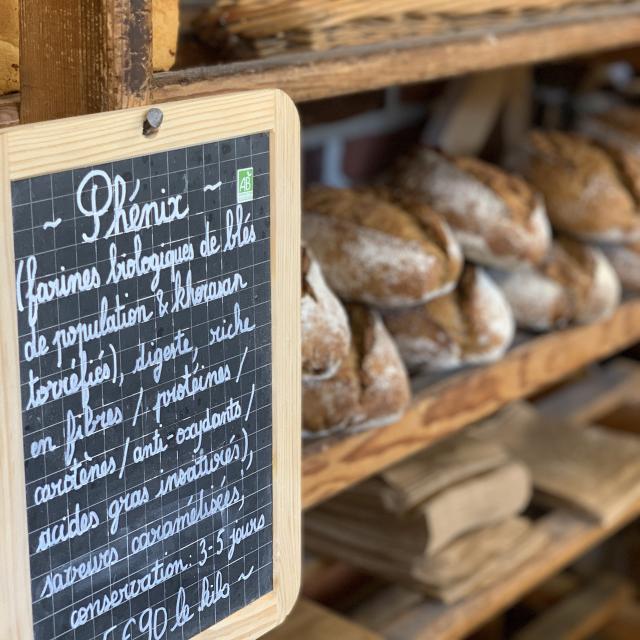 ~ Phénix ~
AB
(farines biologiques de blés
de population & khorasan
torréfiés), digeste, riche
en fibres / protéines /
carotènes / anti-oxydants /
acides gras insaturés),
saveurs caramélisées,
conservation: 3-5 jours
5€90 le kilo ~